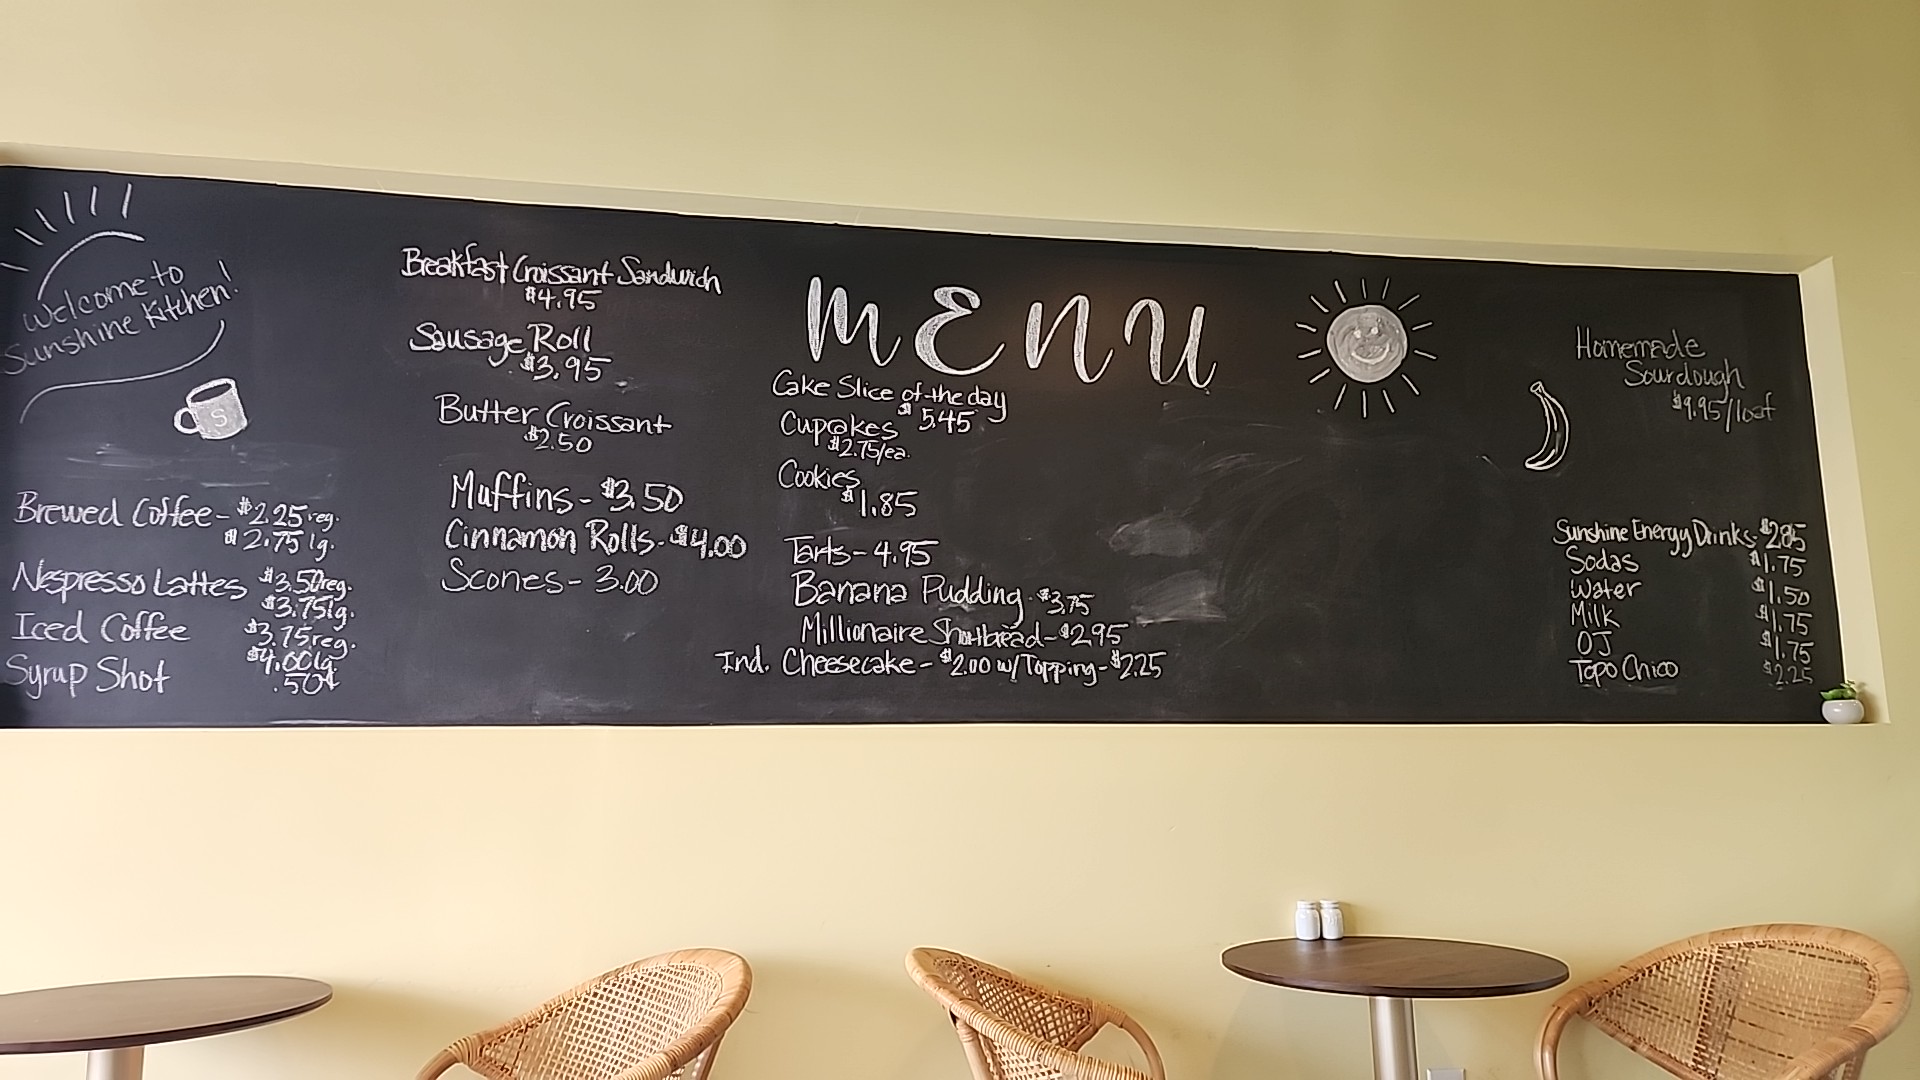 Welcome to
Sunshine Kitchen!
S
Brewed Coffee - $2.25 reg.
$2.75 lg.
Nespresso Lattes $3.50 reg.
$3.75 lg.
Iced Coffee $3.75 reg.
$4.00 lg.
Syrup Shot .50¢
Breakfast Croissant Sandwich
$4.95
Sausage Roll
$3.95
Butter Croissant
$2.50
Muffins - $3.50
Cinnamon Rolls - $4.00
Scones - 3.00
MENU
Cake Slice of the day
$5.45
Cupcakes
$2.75/ea.
Cookies
$1.85
Tarts - 4.95
Banana Pudding - $3.75
Millionaire Shortbread - $2.95
Ind. Cheesecake - $2.00 w/Topping - $2.25
Homemade
Sourdough
$9.95/loaf
Sunshine Energy Drinks $2.85
Sodas $1.75
Water $1.50
Milk $1.75
OJ $1.75
Topo Chico $2.25